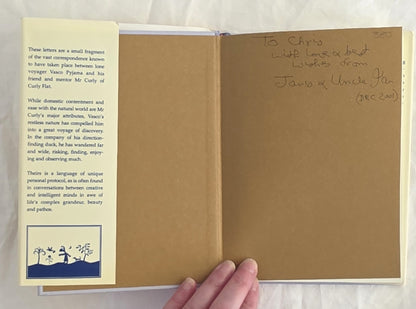 These letters are a small fragment
of the vast correspondence known
to have taken place between lone
voyager Vasco Pyjama and his
friend and mentor Mr Curly of
Curly Flat.
While domestic contentment and
ease with the natural world are Mr
Curly's major attributes, Vasco's
restless nature has compelled him
into a great voyage of discovery.
In the company of his direction-
finding duck, he has wandered far
and wide, risking, finding, enjoy-
ing and observing much.
Theirs is a language of unique
personal protocol, as is often found
in conversations between creative
and intelligent minds in awe of
life's complex grandeur, beauty
and pathos.
To Chris
with love & best
wishes from
& Uncle
(DEC 2001)